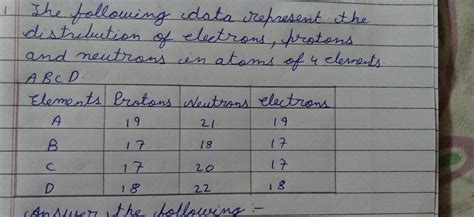 1. The following data represent the
distribution of electrons, protons
and neutrons in atoms of 4 elements
A B C D.
Elements Protons Neutrons electrons
A 19 21 19
B 17 18 17
C 17 20 17
D 18 22 18
Answer the following :-